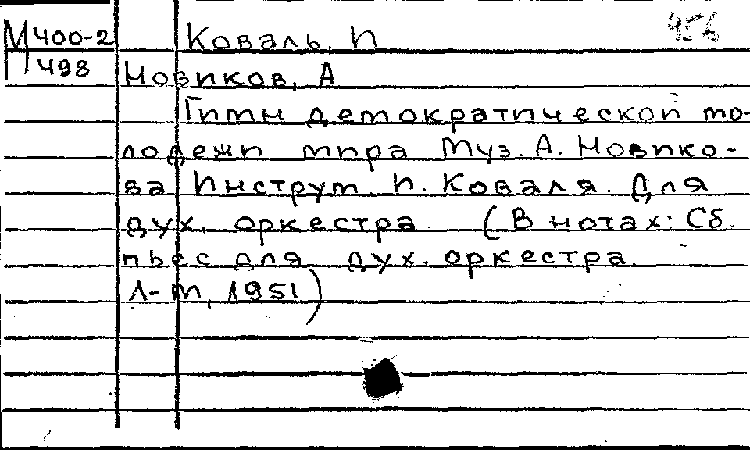 М 400-2 Коваль, И 456
П 498 Новиков, А
Гимн демократической мо-
лодежи мира Муз. А. Новико-
ва Инструм. И. Коваля Для
дух. оркестра (В нотах: Сб.
пьес для дух. оркестра.
Л-М, 1951)